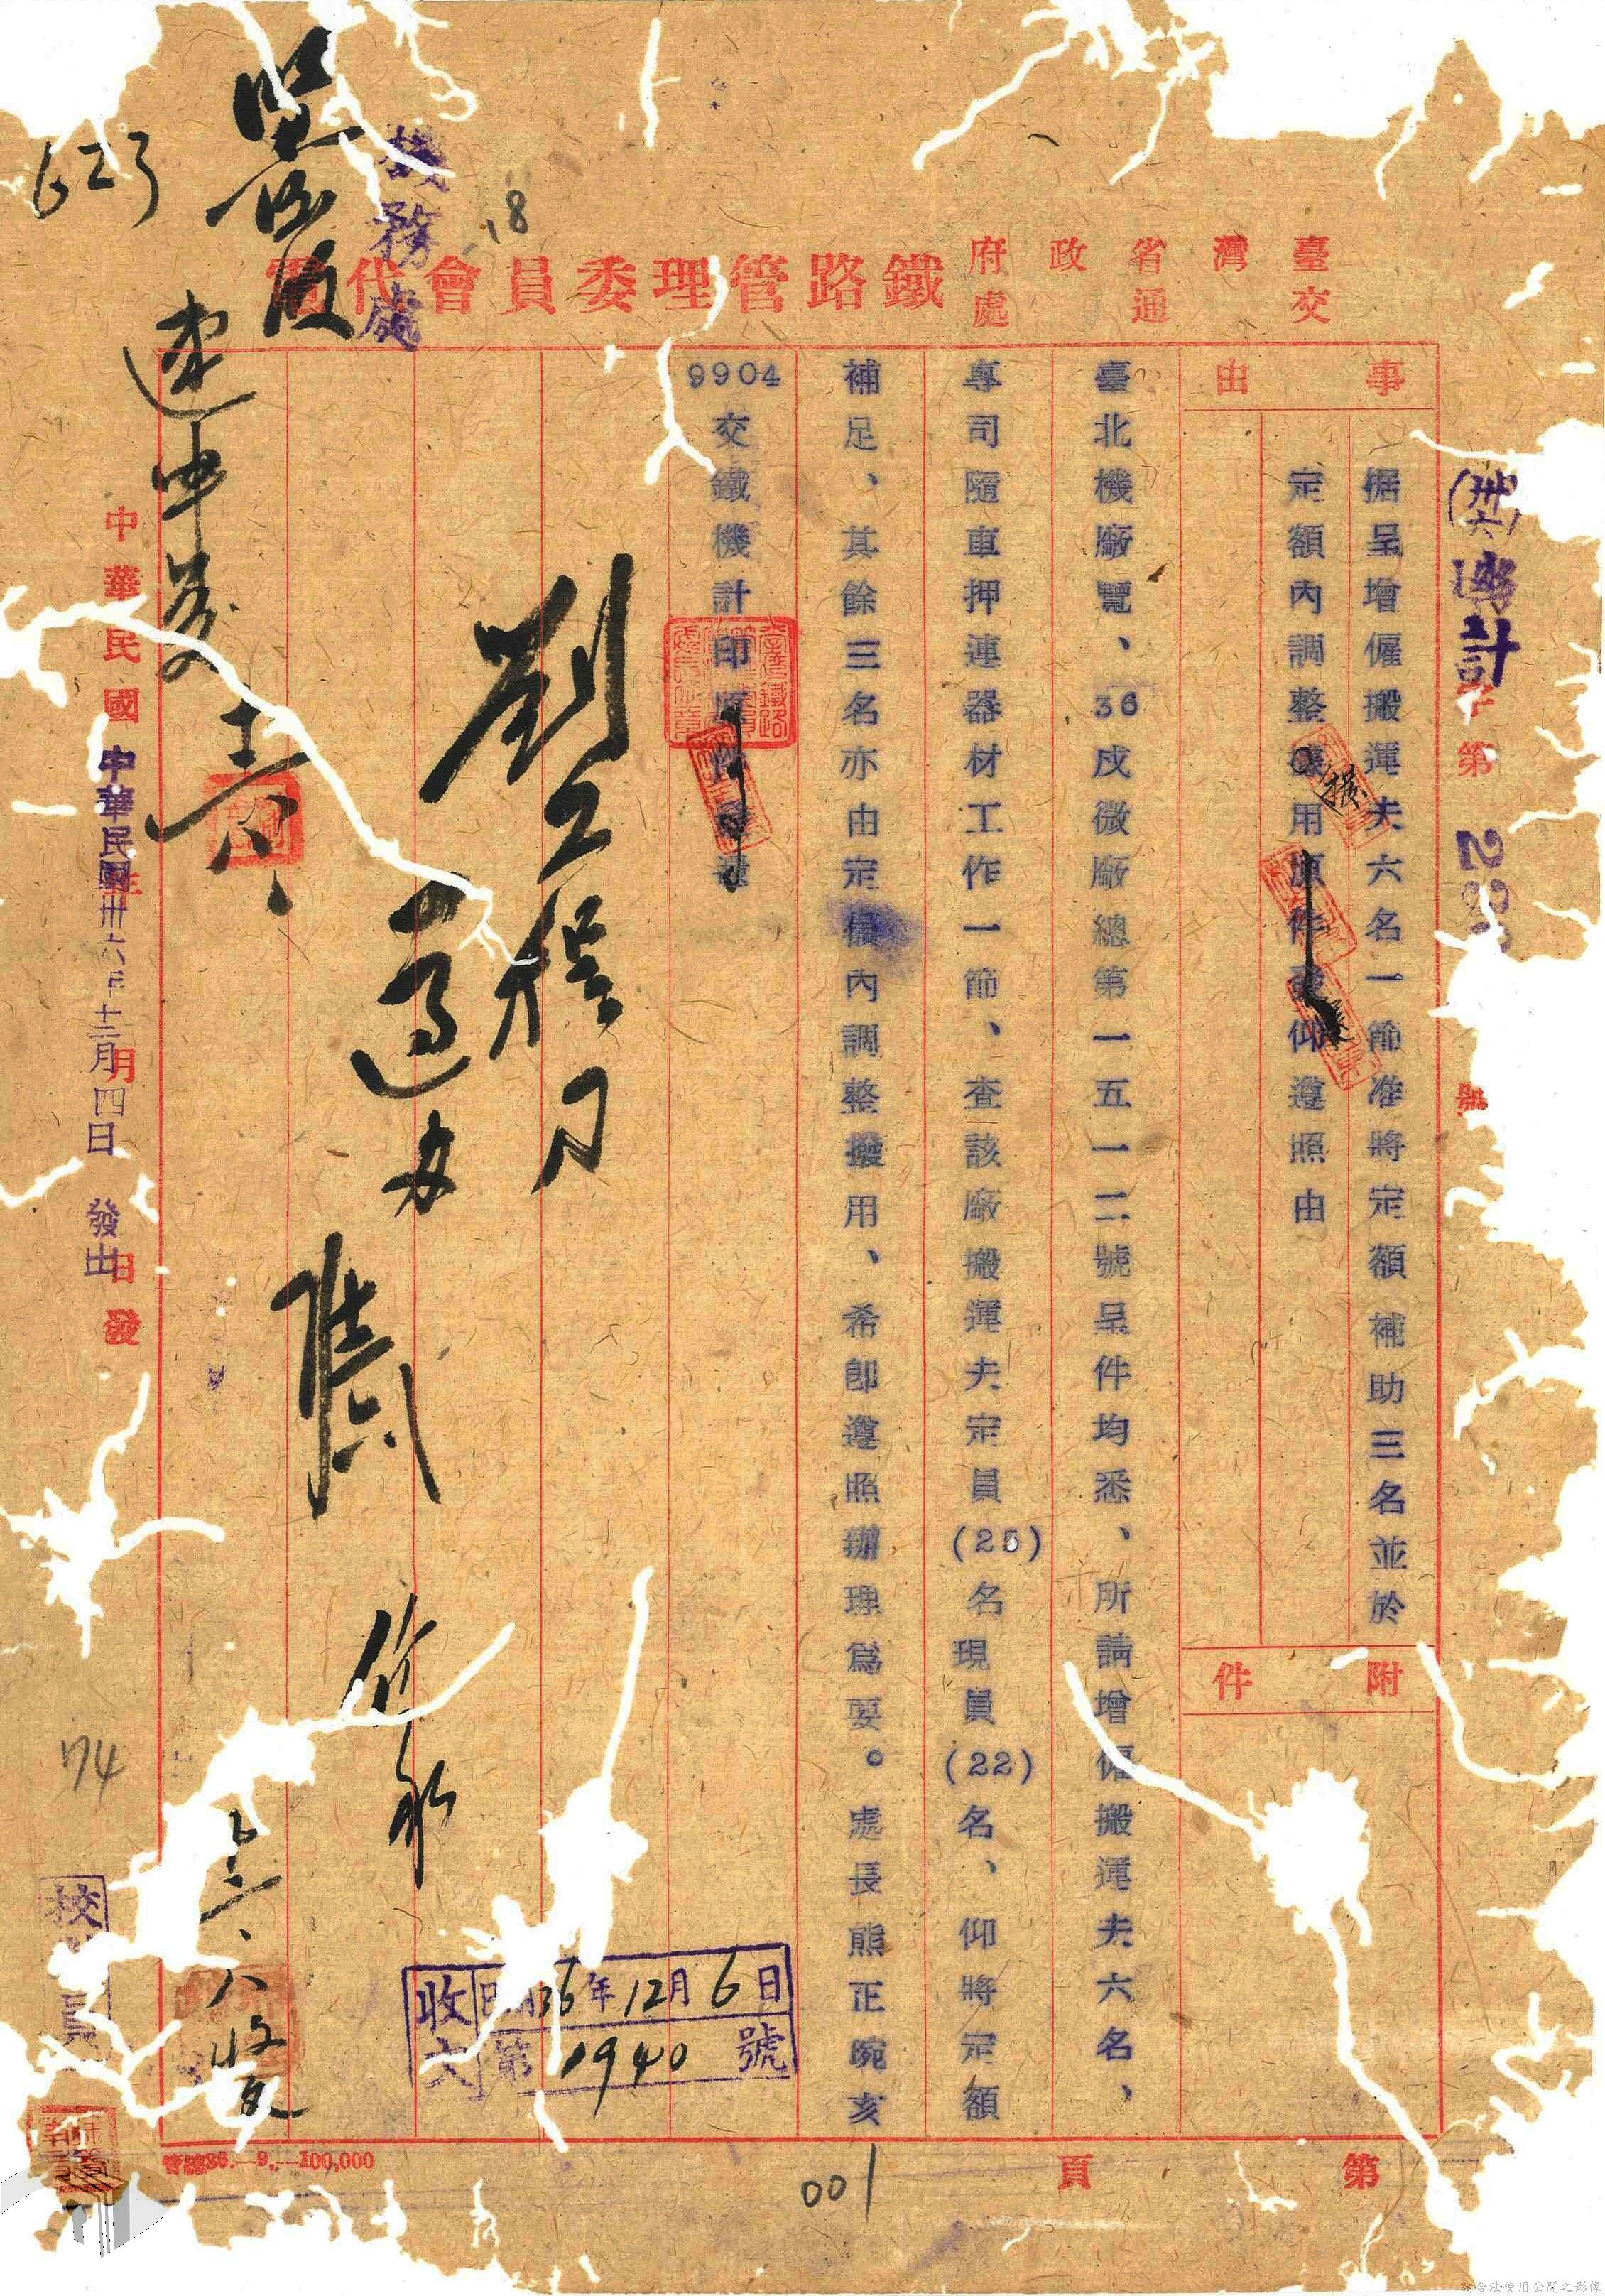 臺灣省政府
交通處
鐵路管理委員會代電
機務處
18
623
事由
據呈增僱搬運夫六名一節准將定額補助三名並於
定額內調整撥用原件發仰遵照由
附件
計字第
號
臺北機廠覽、36戌微廠總第一五一二號呈件均悉、所請增僱搬運夫六名、
專司隨車押連器材工作一節、查該廠搬運夫定員(25)名現員(22)名、仰將定額
補足、其餘三名亦由定額內調整撥用、希即遵照辦理為要。處長熊正琬亥
9904交鐵機計印
劉工程司
遵辦
速申裝
中華民國年月日發
中華民國卅六年十二月四日發出
收文
36年12月6日
第1940號
74
校
員
管總36.—9.—100,000
第頁
001
請合法使用公開之影像